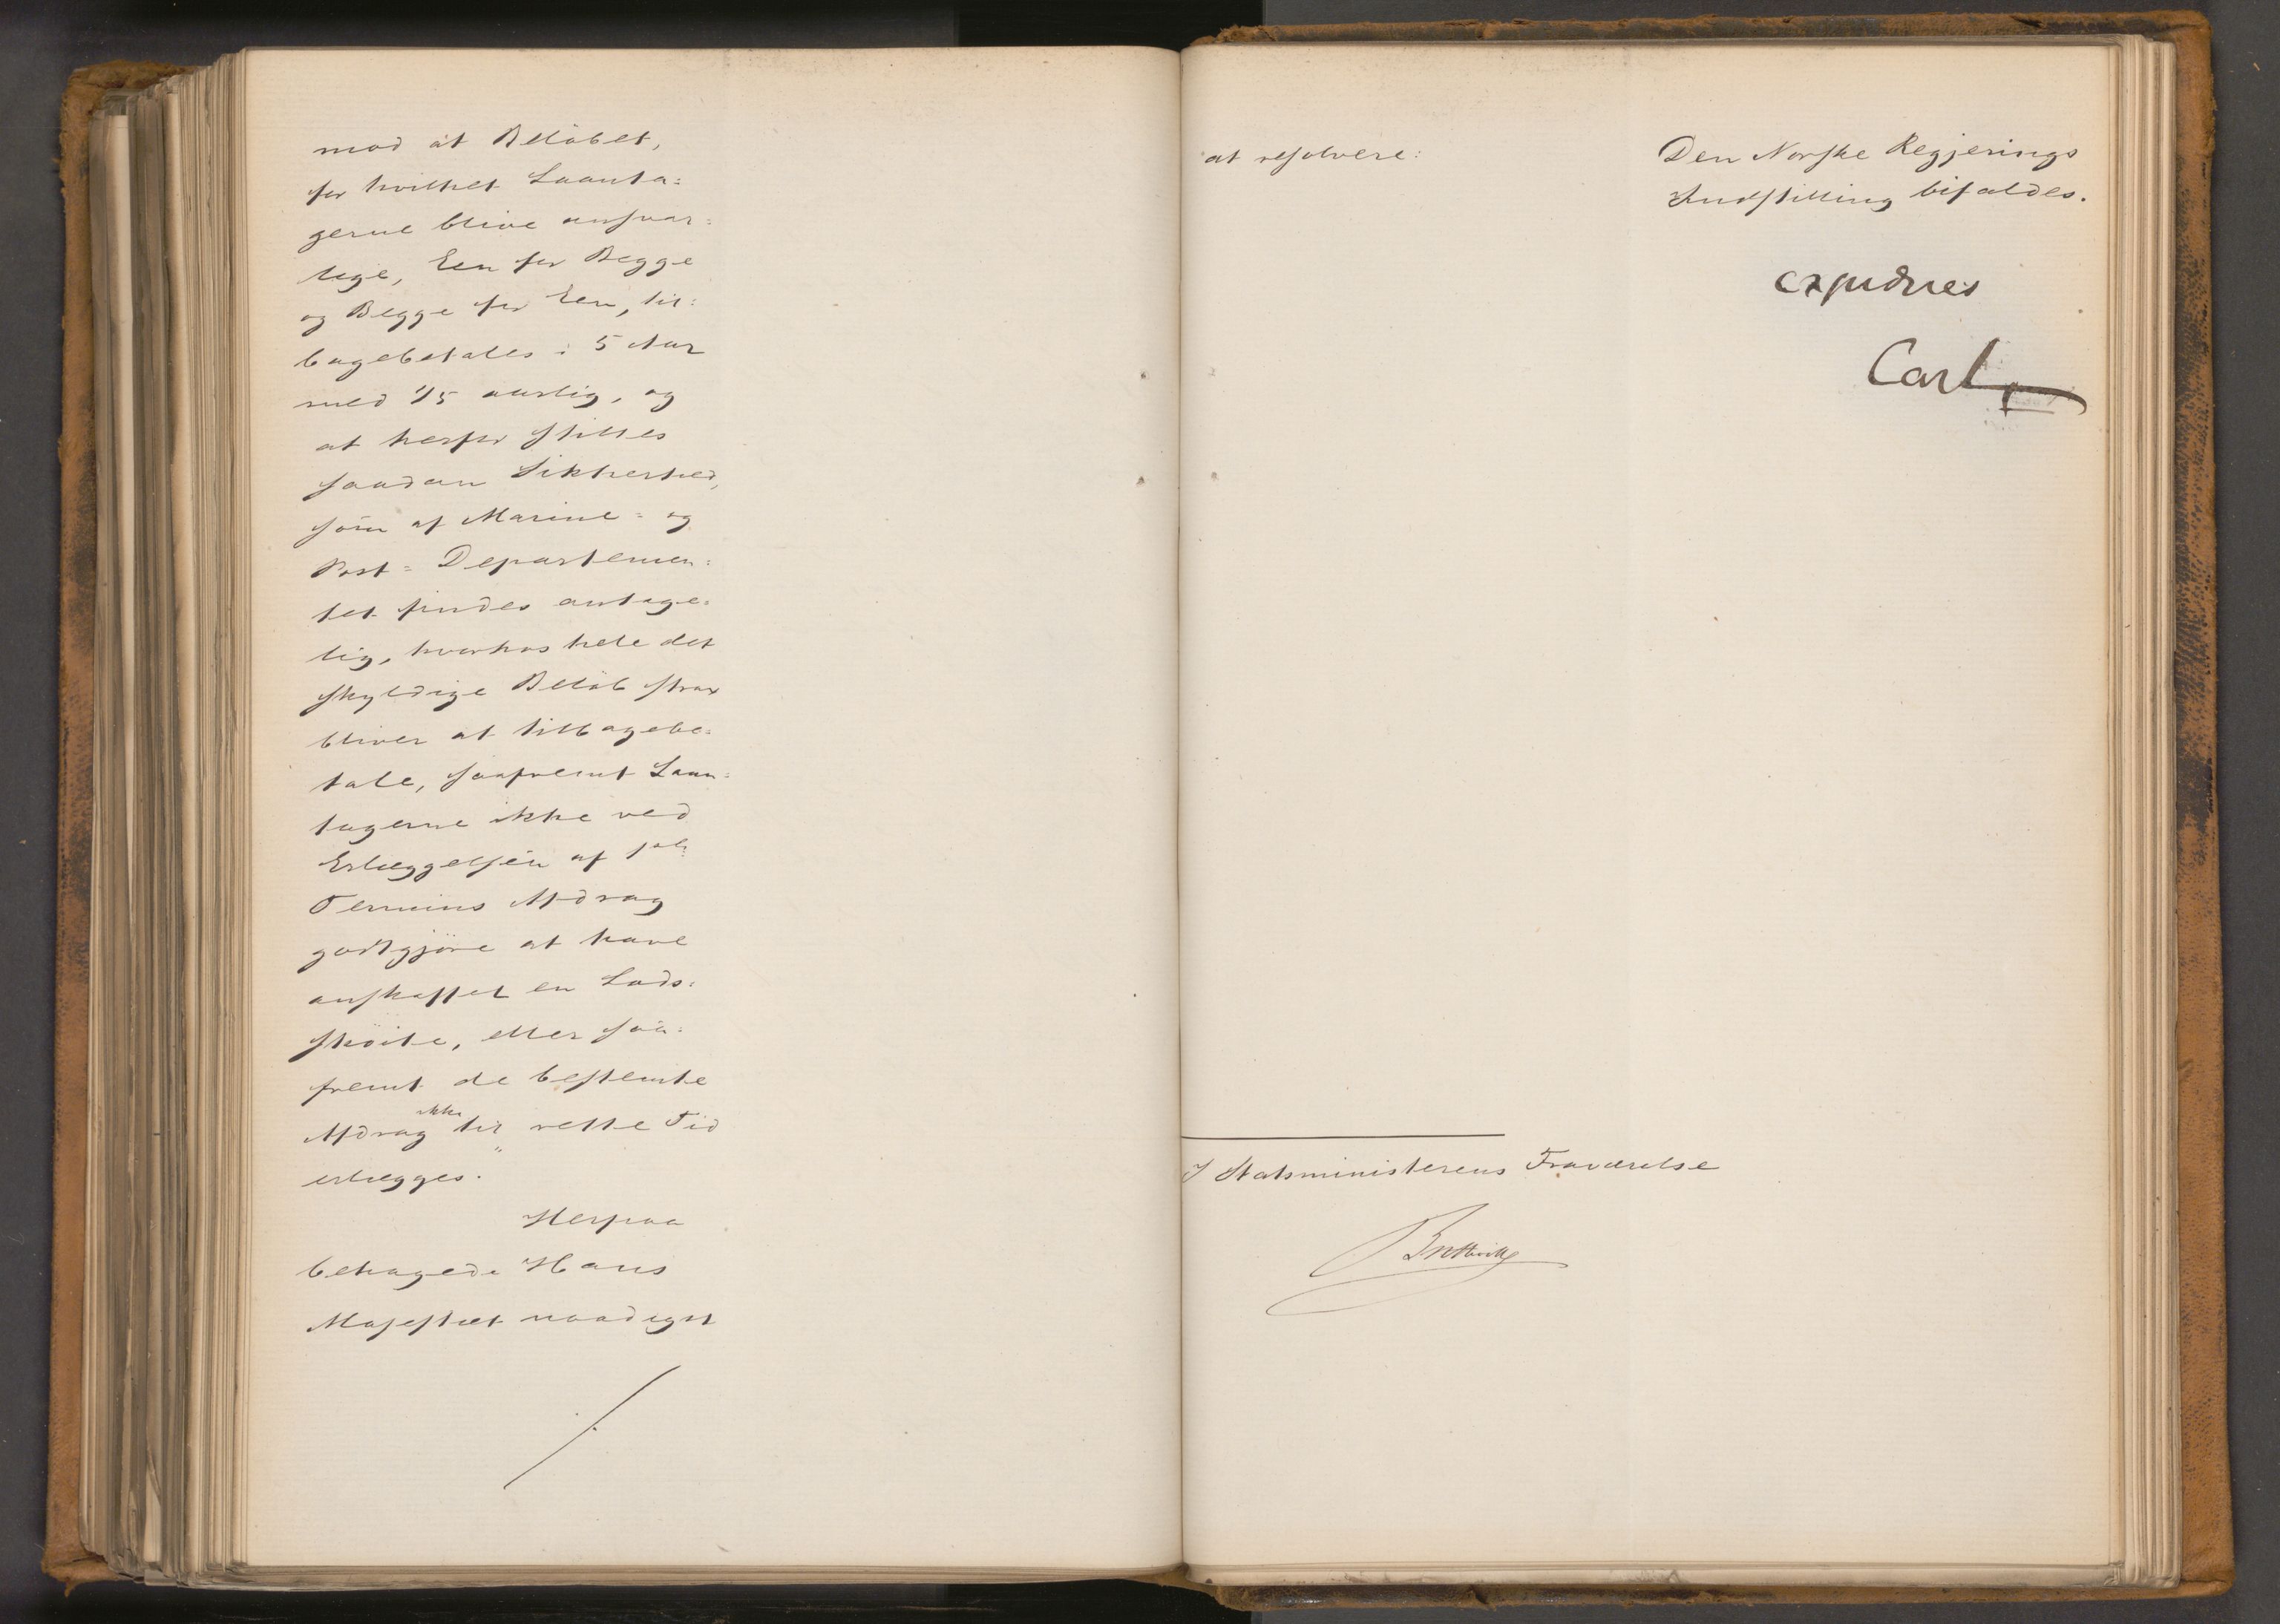 mod at Beløbet,
for hvilket Laanta=
gerne blive ansvar=
lige, Een for Begge
og Begge for Een, til=
bagebetales i 5 Aar
med 1/5 aarlig, og
at herfor stilles
saadan Sikkerhed,
som af Marine= og
Post= Departemen=
tet findes antage=
lig, hvorhos hele det
skyldige Beløb strax
bliver at tilbagebe=
tale, saafremt Laan=
tagerne ikke ved
Erlæggelsen af 1ste
Termins Afdrag
godtgjöre at have
anskaffet en Lods=
sköite, eller saa=
fremt de bestemte
Afdrag ikke til rette Tid
erlægges.
Herpaa
behagede Hans
Majestæt naadigst
at resolvere:
Den Norske Regjerings
Indstilling bifaldes.
expedieres
Carl
I Statsministerens Fraværelse
Bretteville